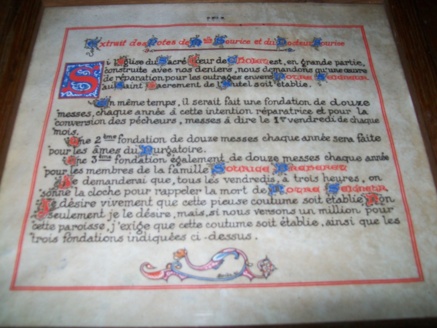 Extrait des Notes de
Si l'Église du Sacré Cœur de est, en grande partie,
construite avec nos deniers, nous demandons qu'une œuvre
de réparation pour les outrages envers
au Saint Sacrement de l'Autel soit établie.
En même temps, il serait fait une fondation de douze
messes, chaque année à cette intention réparatrice et pour la
conversion des pécheurs, messes à dire le 1er vendredi de chaque
mois.
Une 2ème fondation de douze messes chaque année sera faite
pour les âmes du Purgatoire.
Une 3ème fondation également de douze messes chaque année
pour les membres de la famille
Je demanderai que, tous les vendredis, à trois heures, on
sonne la cloche pour rappeler la mort de
Je désire vivement que cette pieuse coutume soit établie. Non
seulement je le désire, mais, si nous versons un million pour
cette paroisse, j'exige que cette coutume soit établie, ainsi que les
trois fondations indiquées ci-dessus.